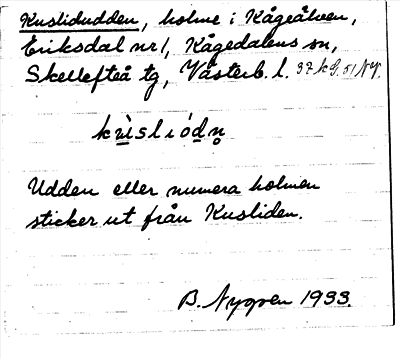 Kuslidudden, holme i Kågeälven,
Eriksdal nr 1, Kågedalens sn,
Skellefteå tg, Västerb. l. 37 kS. 51 NV.
kʉ̀sliódn̥
Udden eller numera holmen
sticker ut från Kusliden.
B. Nygren 1933.